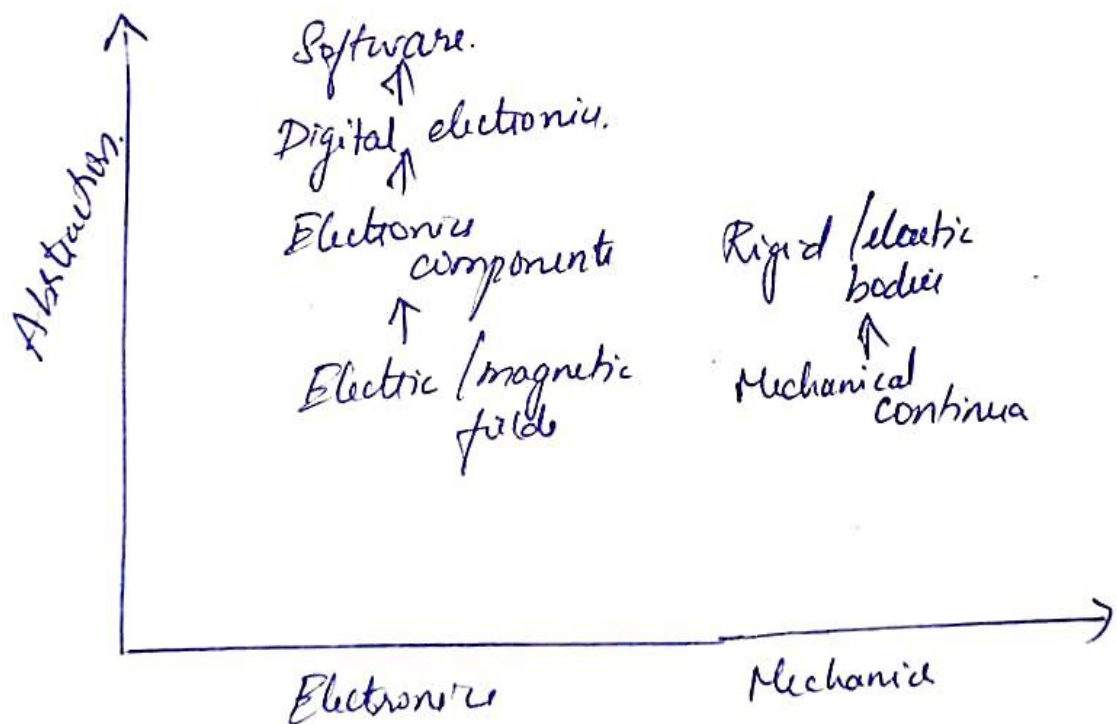 Abstraction.
Software.
Digital electronics.
Electronics
components
Electric / magnetic
fields
Rigid / elastic
bodies
Mechanical
continua
Electronics
Mechanics